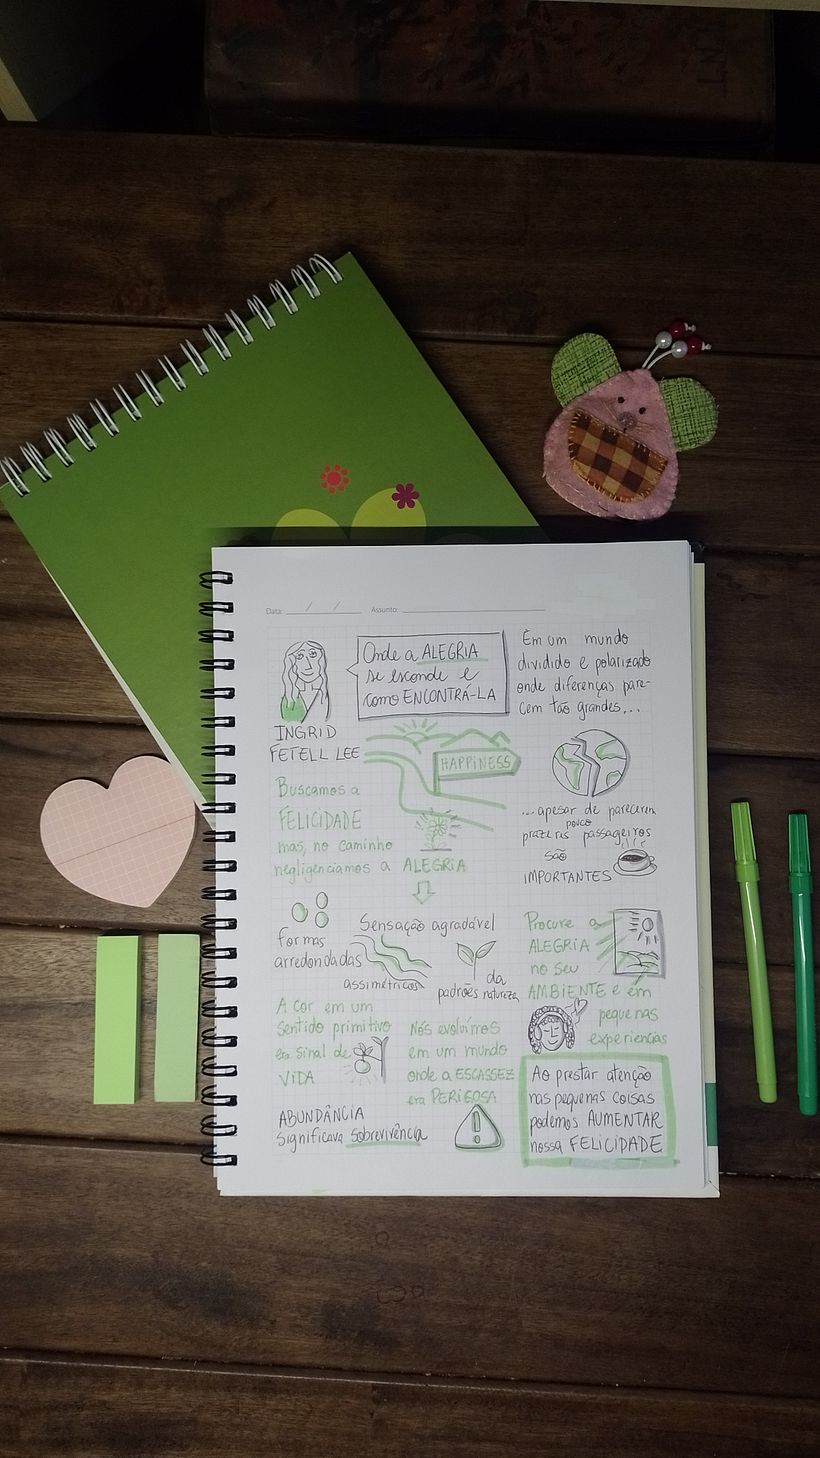 Data: / / Assunto:
Onde a ALEGRIA
se esconde e
como ENCONTRÁ-LA
INGRID
FETELL LEE
HAPPINESS
Buscamos a
FELICIDADE
mas, no caminho
negligenciamos a ALEGRIA
Sensação agradável
formas
arredondadas
assimétricos
padrões da
natureza
A cor em um
sentido primitivo
era sinal de
VIDA
Nós evoluímos
em um mundo
onde a ESCASSEZ
era PERIGOSA
ABUNDÂNCIA
Significava Sobrevivência
Em um mundo
dividido e polarizado
onde diferenças pare-
cem tão grandes...
...apesar de parecerem
pouco
prazeres passageiros
são
IMPORTANTES
Procure a
ALEGRIA
no seu
AMBIENTE e em
pequenas
experiencias
Ao prestar atenção
nas pequenas coisas
podemos AUMENTAR
nossa FELICIDADE